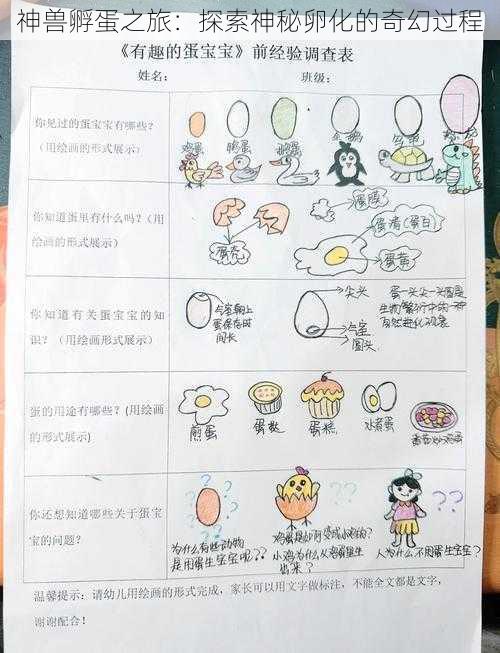 神兽孵蛋之旅：探索神秘卵化的奇幻过程
《有趣的蛋宝宝》前经验调查表
姓名： 班级：
你见过的蛋宝宝有哪些？
（用绘画的形式展示）
鸡蛋 鸭蛋 鹅蛋 企鹅
你知道蛋里有什么吗？（用
绘画的形式展示）
蛋壳
蛋膜
蛋清(蛋白)
蛋黄
你知道有关蛋宝宝的知
识？（用绘画形式展示）
气室朝上
蛋保存时
间长
尖头
气室
圆头
蛋一头尖一头圆是
生物繁衍中的一种
自然进化现象
蛋的用途有哪些？(用绘画
的形式展示)
煎蛋 蛋挞 蛋糕 水煮蛋
你还想知道哪些关于蛋宝
宝的问题？
为什么有些动物
是用蛋生宝宝呢？？
鸡蛋是如何变成小鸡的？
小鸡为什么从鸡蛋里生
出来？
人为什么不用蛋生宝宝？
温馨提示：请幼儿用绘画的形式完成，家长可以用文字做标注，不能全文都是文字，
谢谢配合！